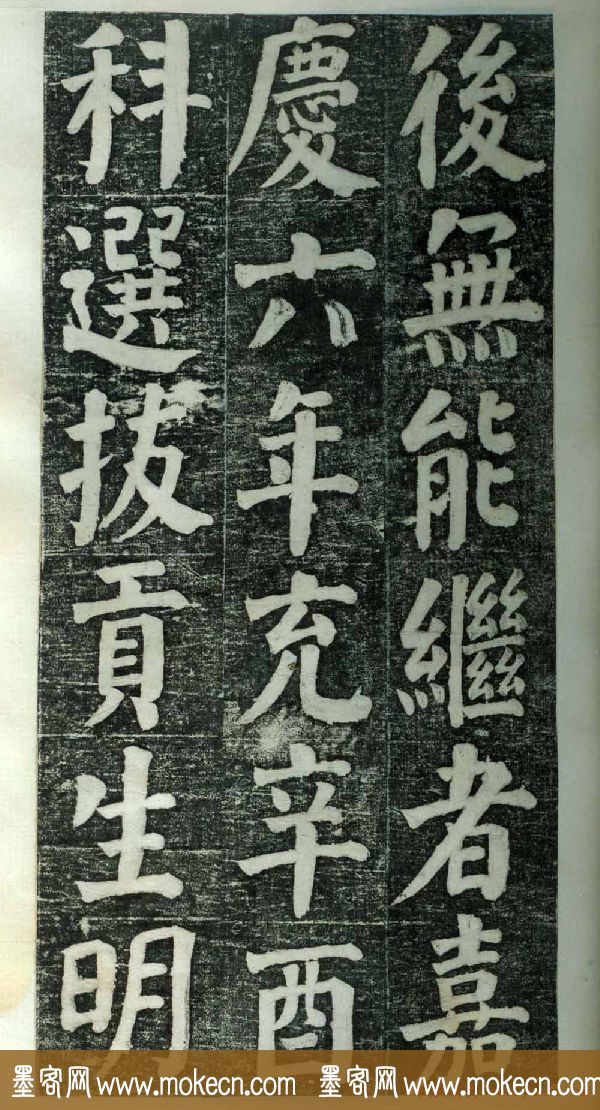 後無能繼者嘉
慶六年充辛酉
科選拔貢生明
墨客网 www.mokecn.com 墨客网 www.mokecn.com